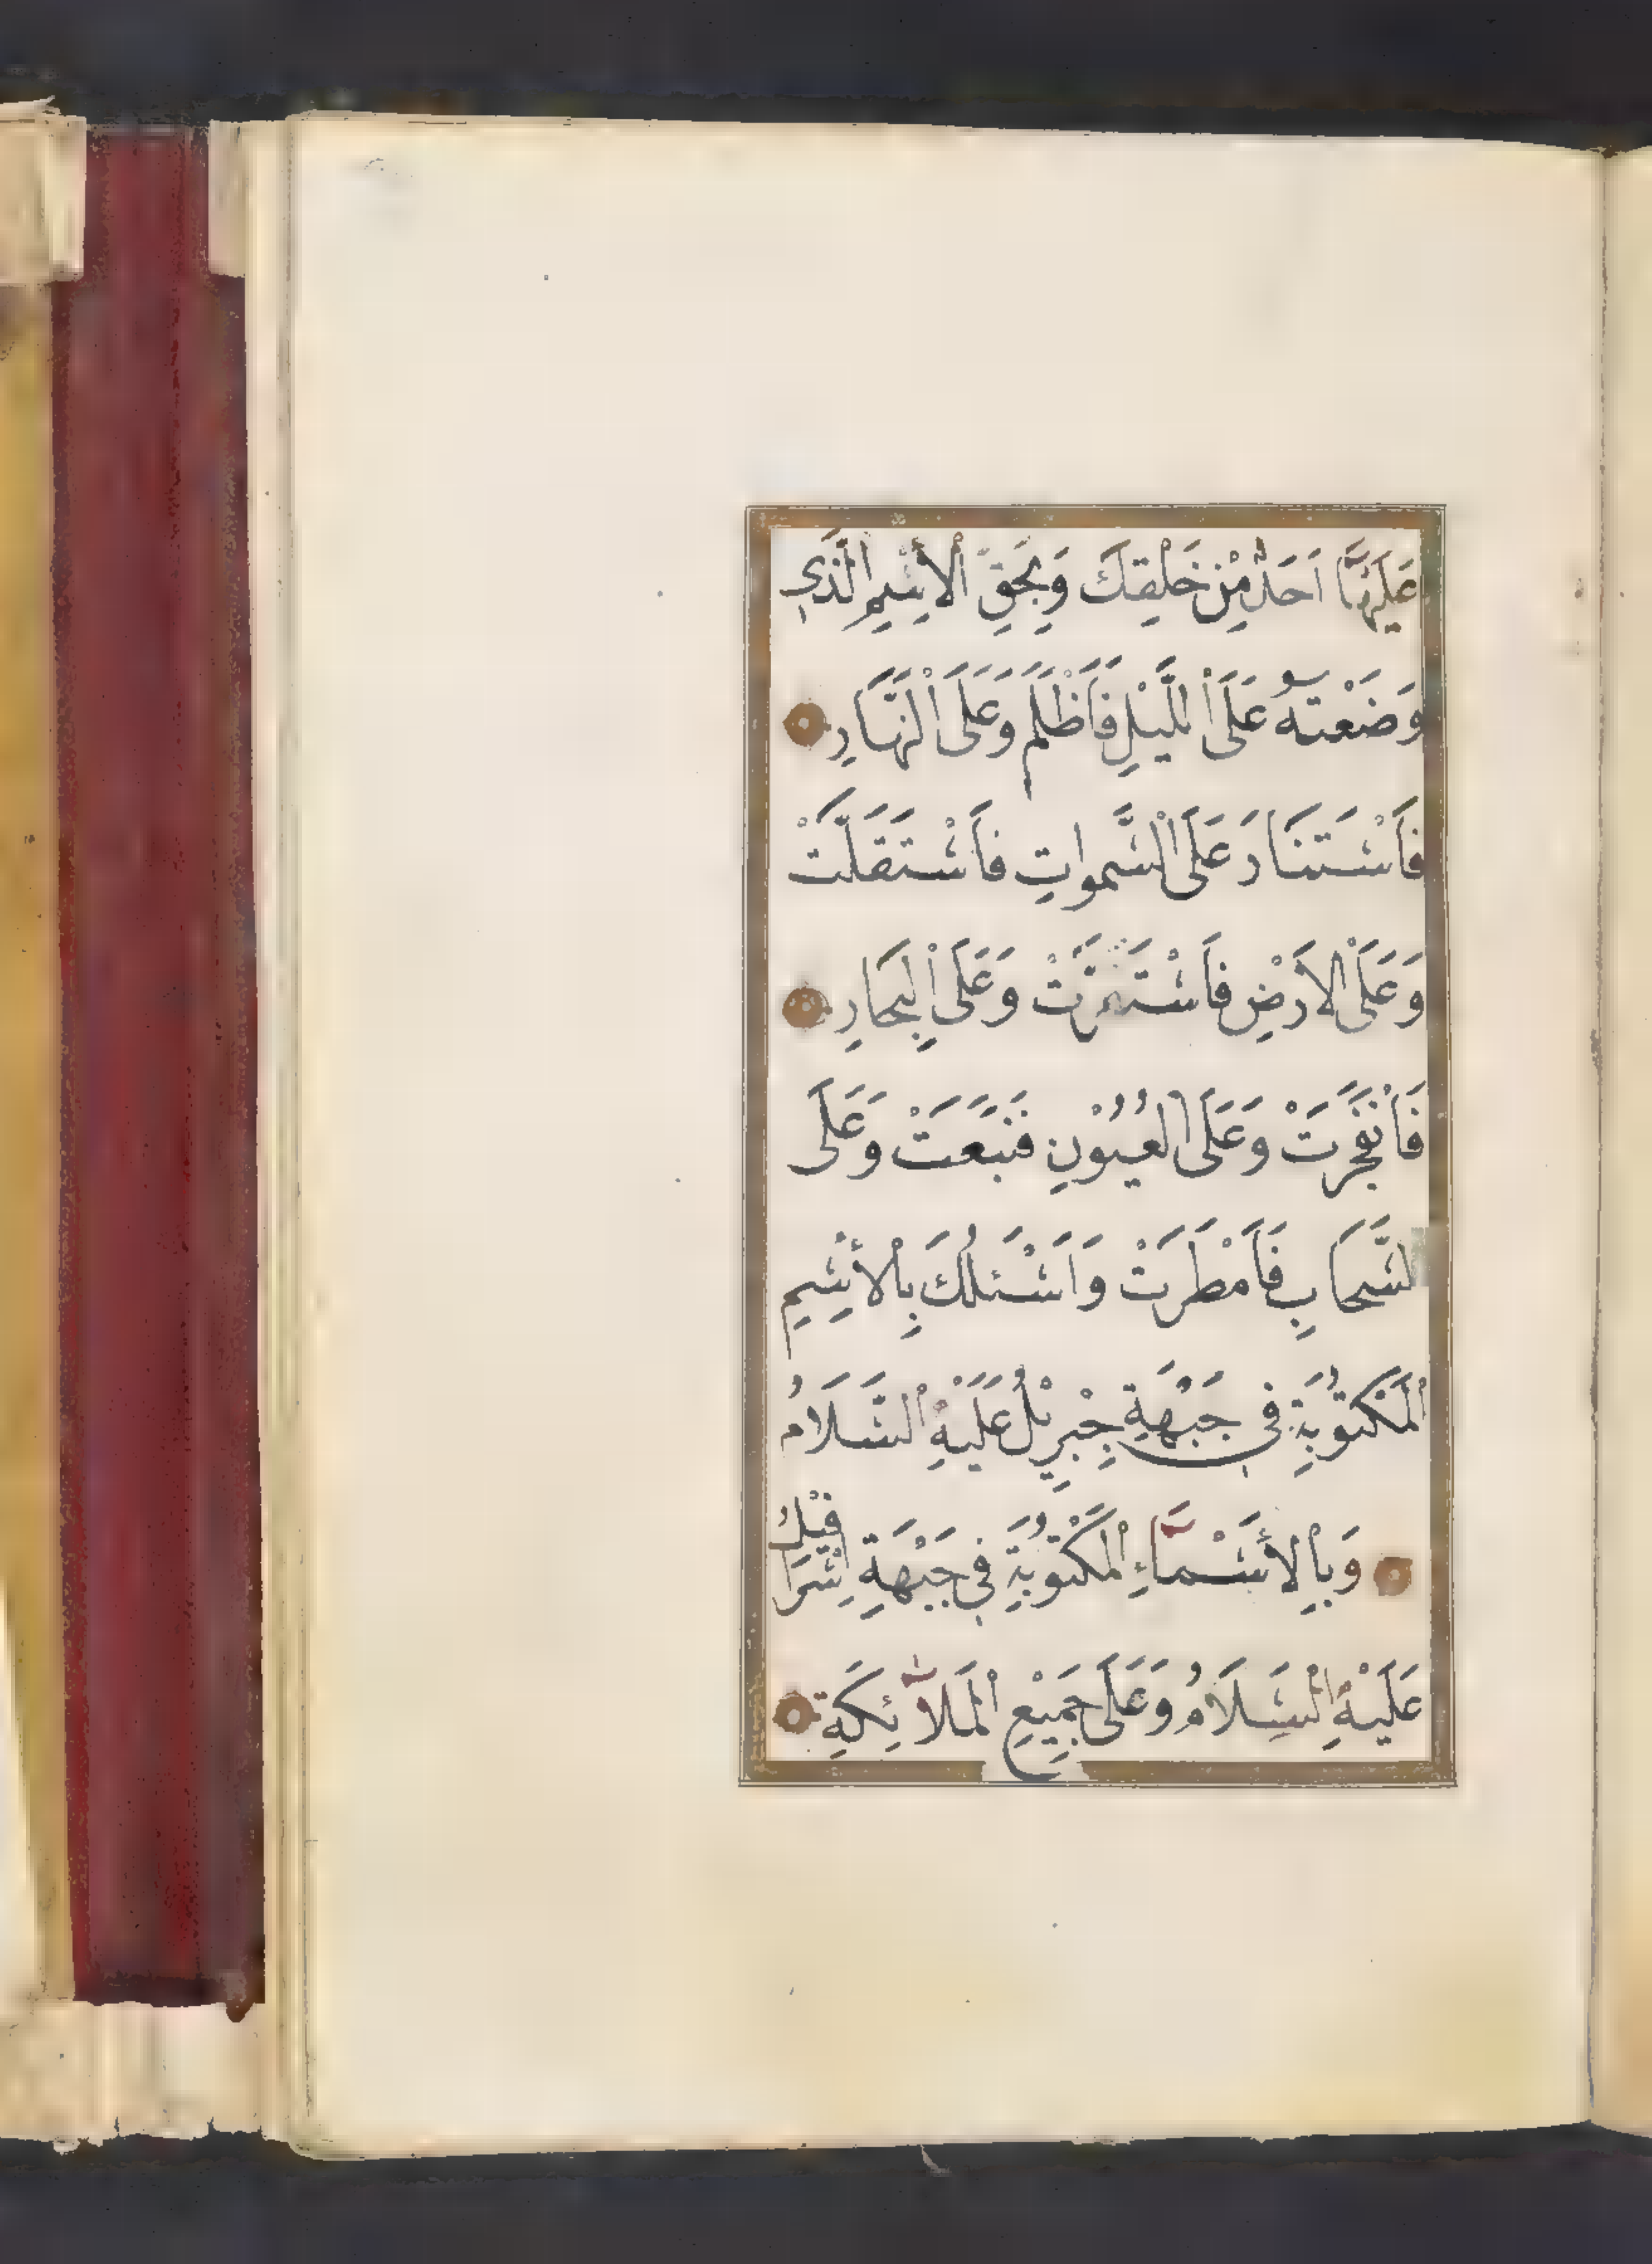 عَلَيْهَا اَحَدٌ مِنْ خَلْقِكَ وَبِحَقِّ الْاِسْمِ الَّذِي
وَضَعْتَهُ عَلَى اللَّيْلِ فَاَظْلَمَ وَعَلَى النَّهَارِ
فَاسْتَنَارَ عَلَى السَّمواتِ فَاسْتَقَلَّتْ
وَعَلَى الْاَرْضِ فَاسْتَقَرَّتْ وَعَلَى الْبِحَارِ
فَانْفَجَرَتْ وَعَلَى الْعُيُوْنِ فَنَبَعَتْ وَعَلَى
السَّحَابِ فَاَمْطَرَتْ وَاَسْئَلُكَ بِالْاِسْمِ
الْمَكْتُوْبَةِ فِى جَبْهَةِ جِبْرِيلَ عَلَيْهِ السَّلَامُ
وَبِالْاَسْمَاءِ الْمَكْتُوْبَةِ فِى جَبْهَةِ اِسْرَافِيْلَ
عَلَيْهِ السَّلَامُ وَعَلَى جَمِيْعِ الْمَلَائِكَةِ